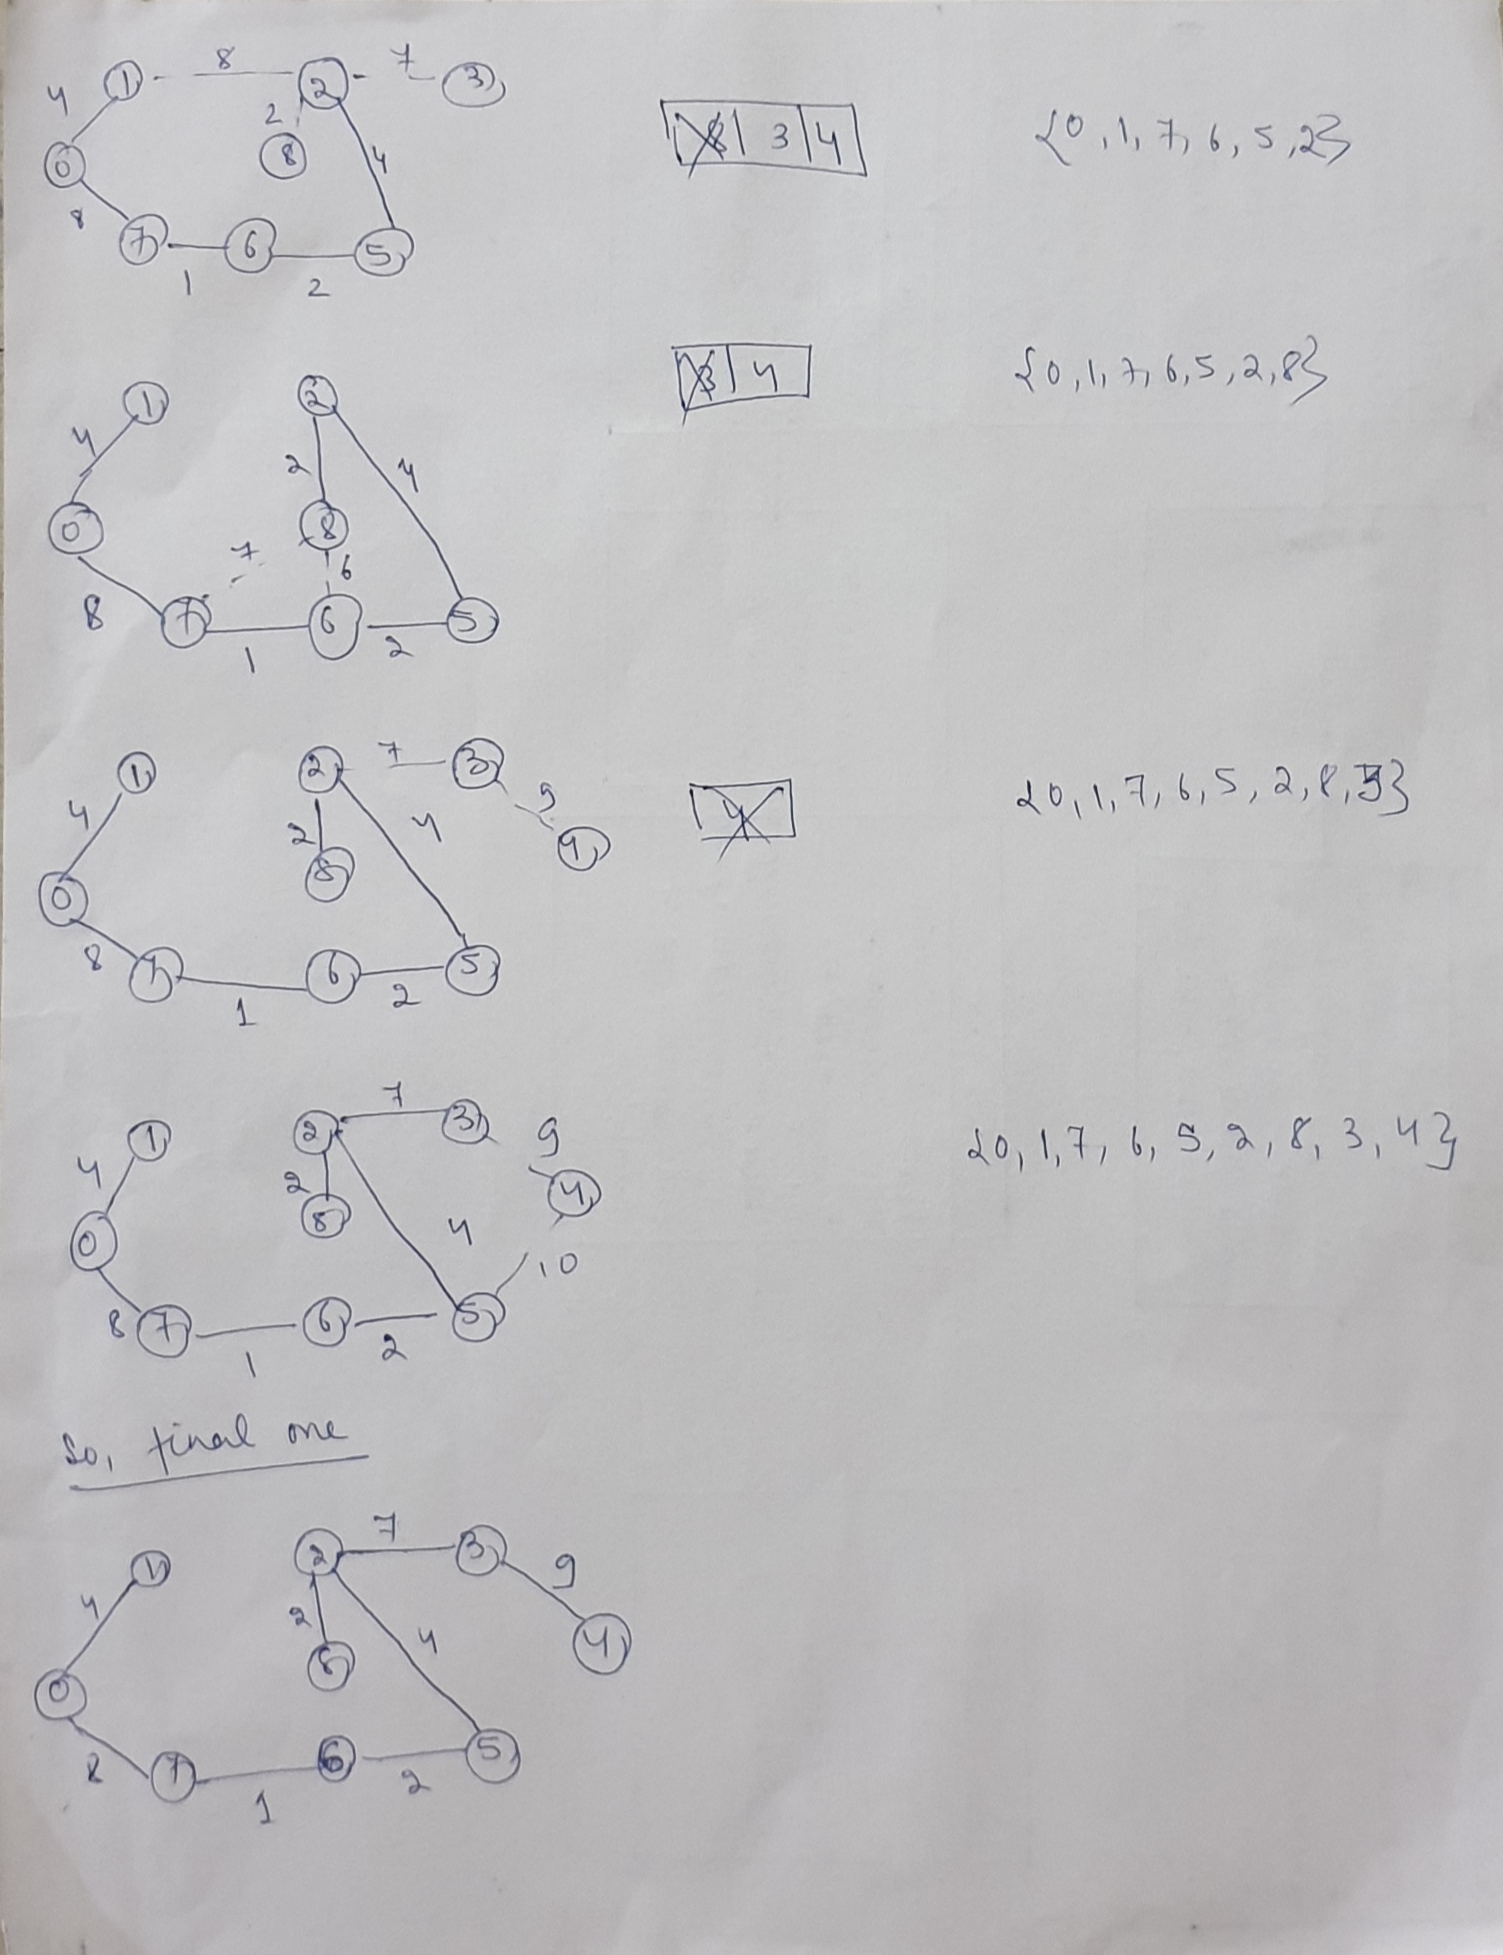 8 7
4 1 2 3
2
0 8 4
8 3 4
{0, 1, 7, 6, 5, 2}
8
7 6 5
1 2
1 2
4 2 4
0 8
7 6
8 7 6 5
1 2
3 4
{0, 1, 7, 6, 5, 2, 8}
1 2 7 3
4 2 4 9
8 4
0
8 7 6 5
1 2
4
{0, 1, 7, 6, 5, 2, 8, 3}
7
1 2 3 9
4 2 4
8 4
0 10
8 7 6 5
1 2
{0, 1, 7, 6, 5, 2, 8, 3, 4}
So, final one
7
1 2 3 9
4 2 4 4
8
0
8 7 6 5
1 2